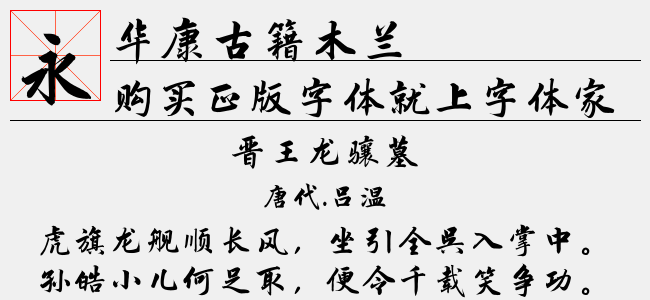 永
华康古籍木兰
购买正版字体就上字体家
晋王龙骧墓
唐代.吕温
虎旗龙舰顺长风，坐引全吴入掌中。
孙皓小儿何足取，便令千载笑争功。